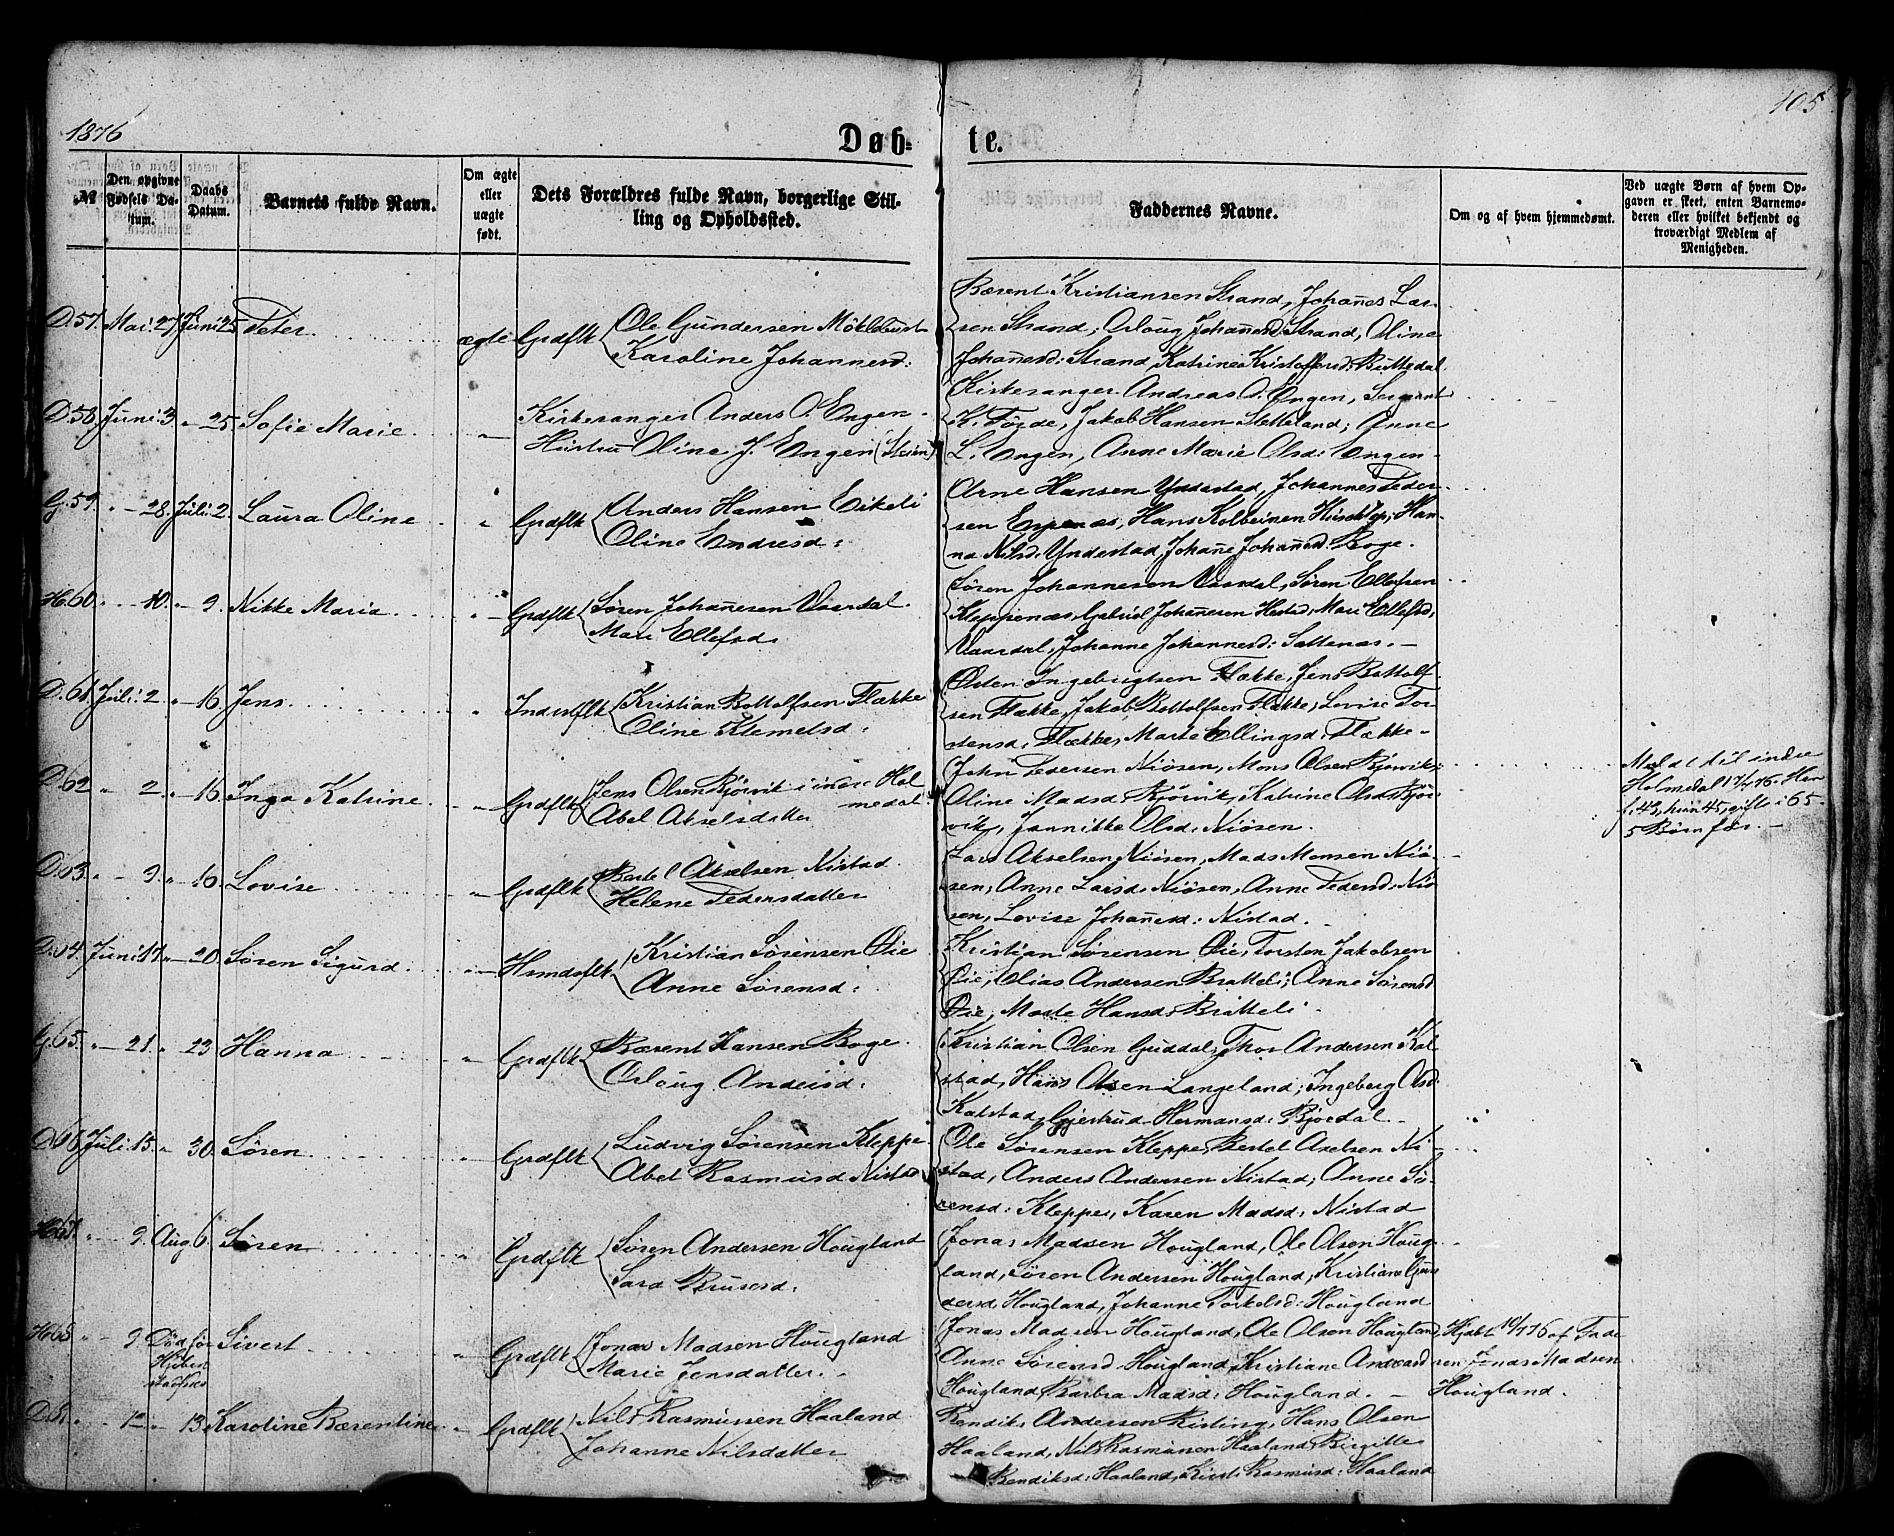 1876
105
Døb-
te.
№
Den opgivne Fødsels Datum.
Daabs Datum.
Barnets fulde Navn.
Om ægte eller uægte født.
Dets Forældres fulde Navn, borgerlige Stilling og Opholdssted.
Faddernes Navne.
Om og af hvem hjemmedømt.
Ved uægte Børn af hvem Opgaven er skeet, enten Barnemoderen eller hvilket bekjendt og troværdigt Medlem af Menigheden.
D. 57. Mai. 27 Juni 25 Peter ægte Grdflk Ole Gundersen Møklebust
Karoline Johannesd:
Bærent Kristiansen Strand, Johanes Lar-
sen Strand; Orloug Johannesd: Strand, Oline
Johanesd: Strand, Katrine Kristoffersd:
D. 58 Juni 3 " 25 Sofie Marie " Kirkesanger Anders O. Engen
Hustru Oline J. Engen
Kirkesanger Andreas O. Engen, Sergeant
K. Førde, Jakob Hansen Sætteland; Anne
L. Engen, Anne Marie Olsd: Engen
G. 59. " 28. Juli 2. Laura Oline " Grdflk Anders Hansen Eikeli
Oline Endresd:
Arne Hansen Undestad, Johannes Peder-
sen Espenæs, Hans Kolbeinsen
na Nilsd: Undestad, Johane Johanesd: Boge.
H. 60. " 10. " 9. Nikke Maria " Grdflk Søren Johanesen Vaardal
Mari Ellefsd:
Søren Johannesen Vaardal, Søren Ellefsen
Kleppenæs, Gabriel Johanesen Hestad, Mari Ellefsd:
Vaardal, Johanne Johannesd: Sattenæs.
D. 61 Juli 2 " 16 Jens " Inderstflk Kristian Bottolfsen Flække
Oline Klemetsd:
Osten Ingebrigtsen Flække, Jens Bottolf-
sen Flække, Jakob Bottolfsen Flække, Lovise Tor-
stensd: Flække, Marte Ellingsd: Flække
D. 62 " 2. " 16 Inga Katrine " Grdflk Jens Olsen Bjørvik i indre Hol-
medal
Abel Akselsdatter
John Pedersen Niøsen, Mons Olsen Bjørvik;
Oline Madsd: Bjørvik, Katrine Olsd: Bjør-
vik, Jannikke Olsd: Niøsen.
Meldt til indre
Holmedal 17/7 76. Han
f. 43, hun 45, gifte i 65.
5 Børn før.
D. 63. " 9. " 16. Lovise " Grdflk Bertel Akselsen Nistad
Helene Pedersdatter
Lars Akselsen Niøsen, Mads Monsen Niø-
sen, Anne Larsd: Niøsen, Anne Pedersd: Niø-
sen, Lovise Johanesd: Nistad.
D. 64. Juni 17. " 20. Søren Sigurd " Hsmdsflk Kristian Sørensen Øie
Anne Sørensd:
Kristian Sørensen Øie, Torsten Jakobsen
Øie, Elias Andersen Bratteli; Anne Sørensd
Øie, Marte Hansd: Bratteli
G. 65. " 21. " 23 Hanna " Grdflk Bærent Hansen Boge
Orloug Andersd:
Kristian Olsen Guddal; Thor Andersen Kal-
stad, Hans Olsen Langeland; Ingeborg Olsd:
Kalstad, Gjertrud Hermansd: Bjordal
D. 66 Juli 15. " 30. Søren " Grdflk Ludvig Sørensen Kleppe
Abel Rasmusd Nistad
Ole Sørensen Kleppe, Bertel Axelsen Ni-
stad, Anders Andersen Nistad; Anne Sø-
rensd: Kleppe, Karen Madsd: Nistad
H. 67. " 9. Aug 6. Søren " Grdflk Søren Andersen Hougland
Sara Brusesd:
Jonas Madsen Hougland, Ole Olsen Houg-
land, Søren Andersen Hougland; Kristiane Gun-
dersd: Hougland, Johanne Torkelsd: Hougland
H. 68 " 9. Død før Sivert " Grdflk Jonas Madsen Hougland
Marie Jensdatter
Jonas Madsen Hougland, Ole Olsen Hougland,
Anne Sørensd Hougland, Kristiane
Hougland, Barbra Madsd: Hougland.
Hjdbt 10/7 76 af Fade-
ren Jonas Madsen
Hougland.
" 12 " 13 Karoline Bærentine " Grdflk Nils Rasmussen Haaland
Johanne Nilsdatter
Bendik Andersen Risting, Hans Olsen
Haaland, Nils Rasmussen Haaland, Birgitte
Bendiksd: Haaland, Kirst: Rasmusd: Haaland